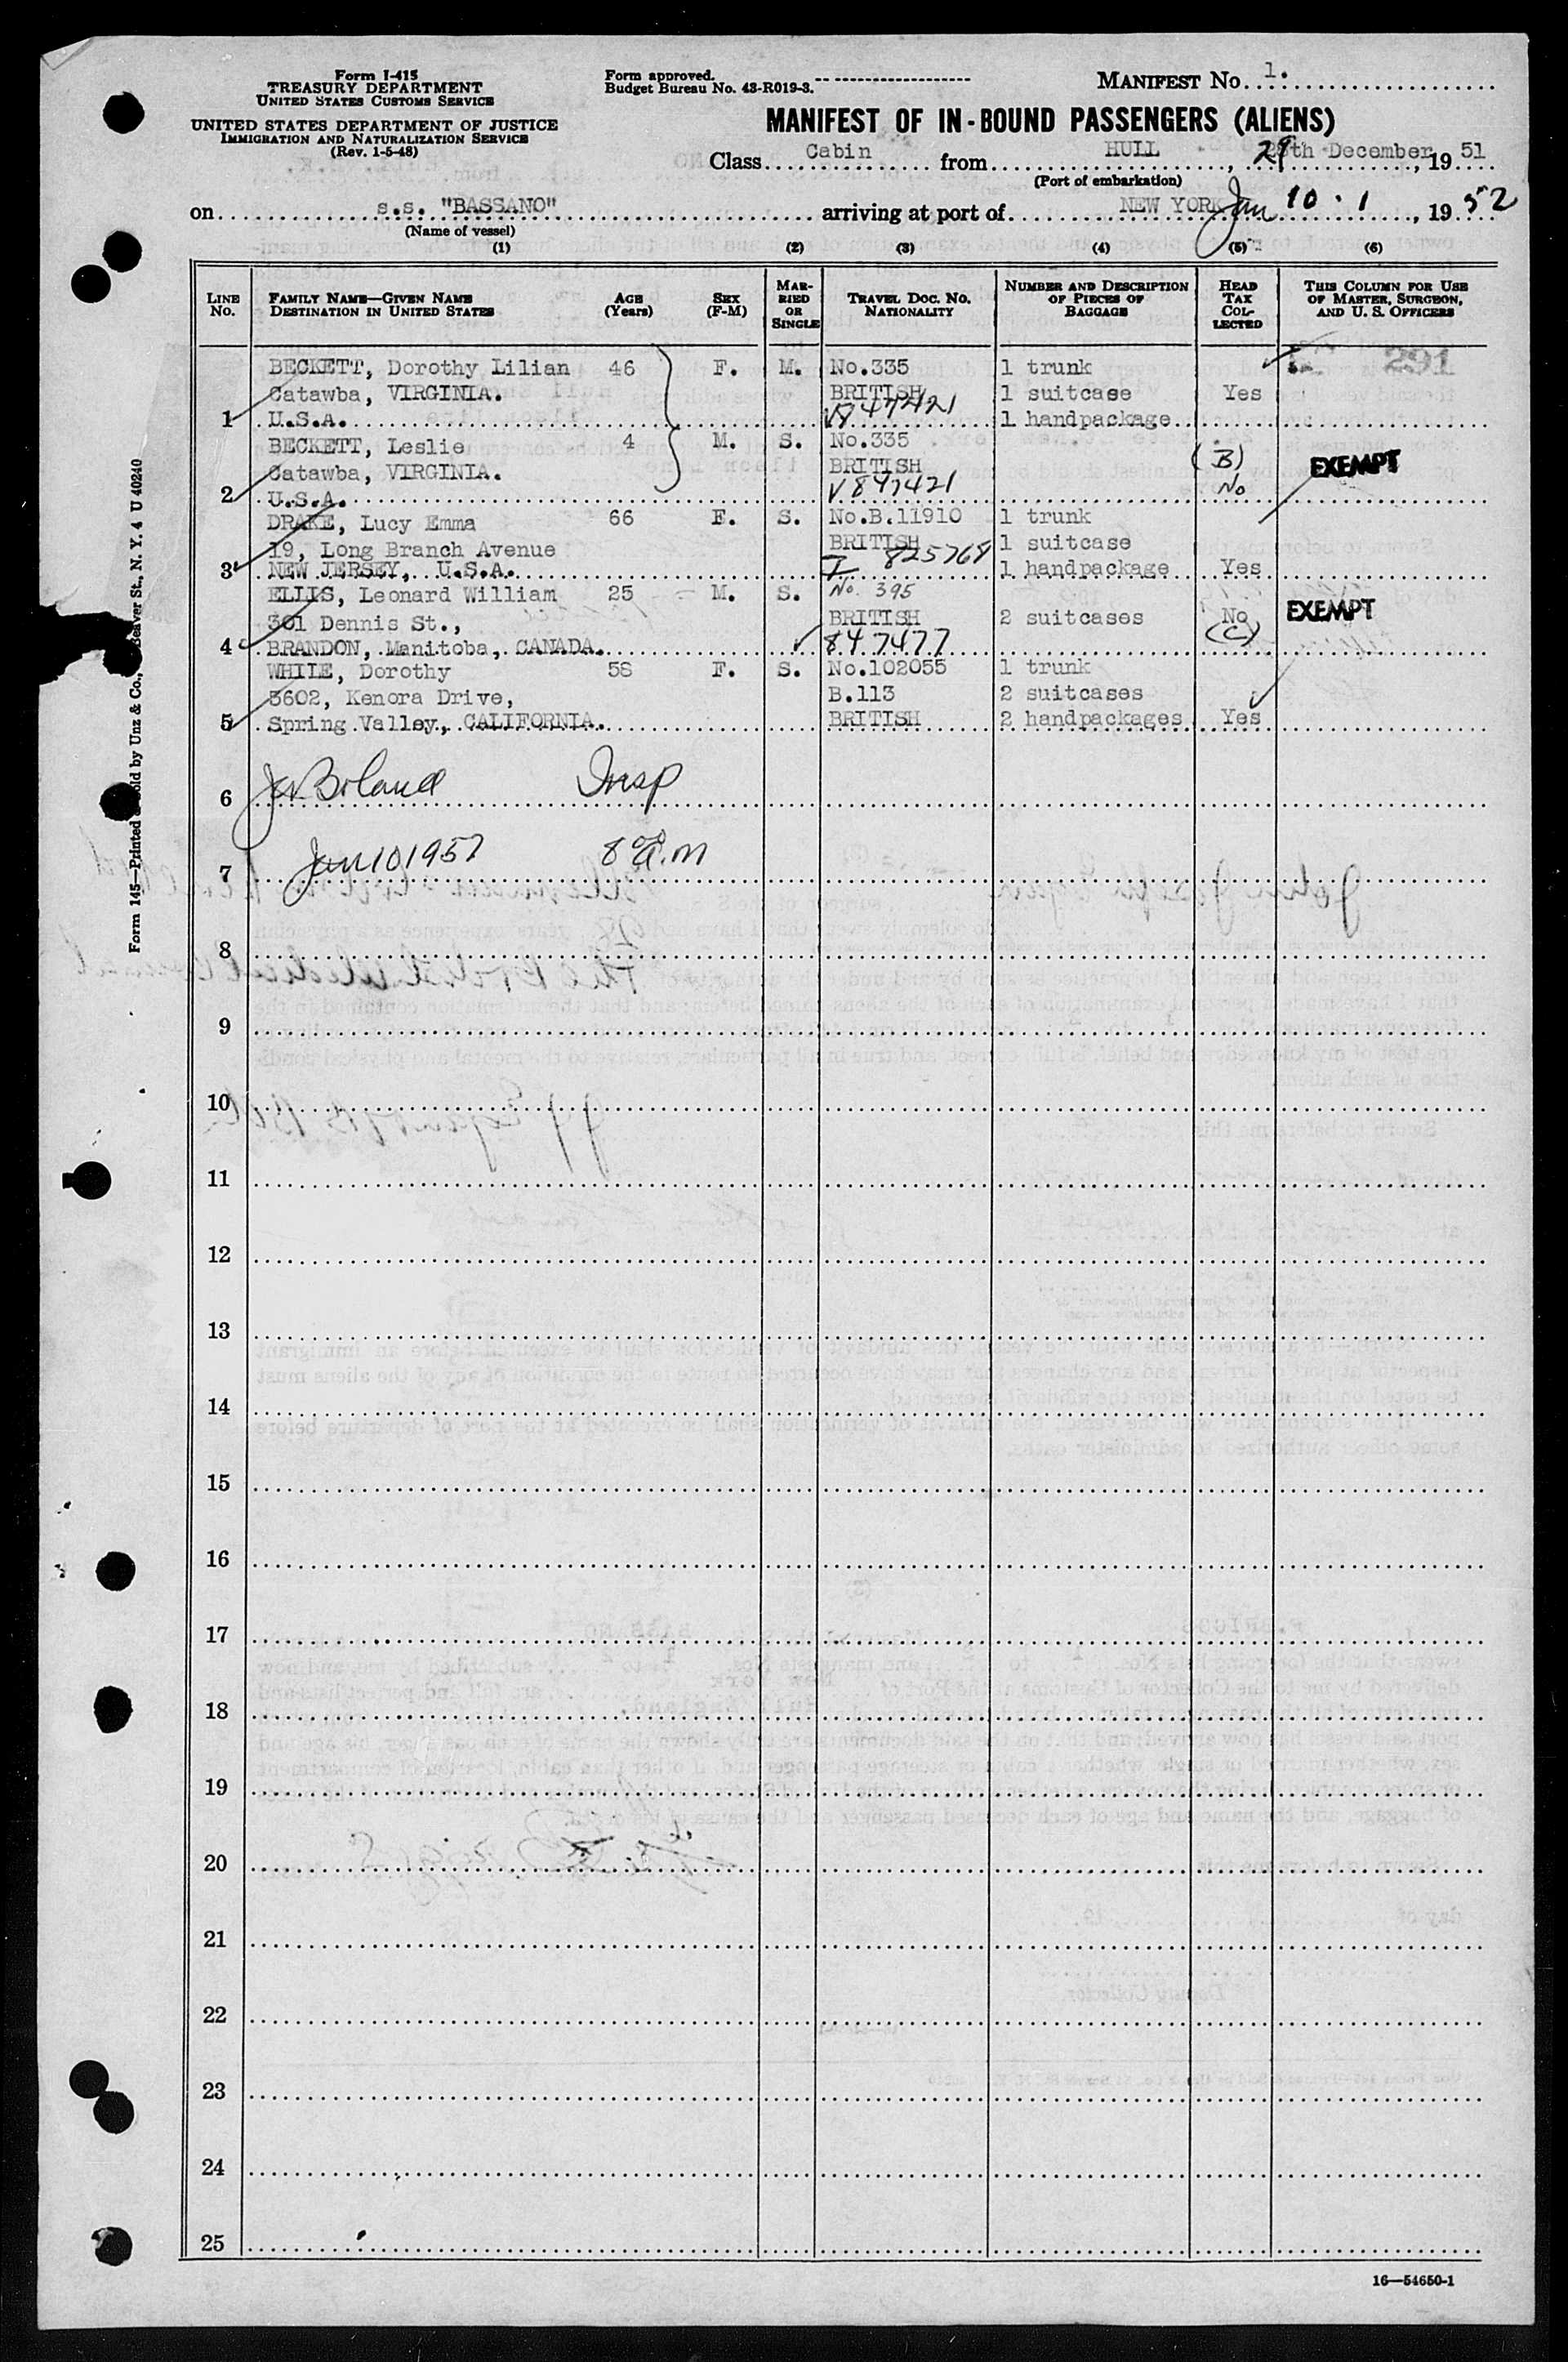 Form I-415
TREASURY DEPARTMENT
UNITED STATES CUSTOMS SERVICE
UNITED STATES DEPARTMENT OF JUSTICE
IMMIGRATION AND NATURALIZATION SERVICE
(Rev. 1-5-48)
Form approved.
Budget Bureau No. 43-R019-3.
MANIFEST No. 1.
MANIFEST OF IN-BOUND PASSENGERS (ALIENS)
Class Cabin from HULL, 29th December, 19 51
(Port of embarkation)
on s.s. "BASSANO" arriving at port of NEW YORK Jan 10 . 1, 19 52
(Name of vessel)
(1) (2) (3) (4) (5) (6)
LINE No. FAMILY NAME—GIVEN NAME DESTINATION IN UNITED STATES AGE (Years) SEX (F-M) MARRIED OR SINGLE TRAVEL DOC. NO. NATIONALITY NUMBER AND DESCRIPTION OF PIECES OF BAGGAGE HEAD TAX COLLECTED THIS COLUMN FOR USE OF MASTER, SURGEON, AND U. S. OFFICERS
BECKETT, Dorothy Lilian 46 F. M. No.335 1 trunk 291
Catawba, VIRGINIA. BRITISH 1 suitcase Yes
1 U.S.A. V847421 1 handpackage
BECKETT, Leslie 4 M. S. No.335
Catawba, VIRGINIA. BRITISH (B) EXEMPT
2 U.S.A. V847421 No
DRAKE, Lucy Emma 66 F. S. No.B.11910 1 trunk
19, Long Branch Avenue BRITISH 1 suitcase
3 NEW JERSEY, U.S.A. I 825768 1 handpackage Yes
ELLIS, Leonard William 25 M. S. No. 395
301 Dennis St., BRITISH 2 suitcases No EXEMPT
4 BRANDON, Manitoba, CANADA. 847477 (C)
WHILE, Dorothy 58 F. S. No.102055 1 trunk
3602, Kenora Drive, B.113 2 suitcases
5 Spring Valley, CALIFORNIA. BRITISH 2 handpackages Yes
6 Boland Insp
7 Jan 10 1952 8 00 a.m
8
9
10
11
12
13
14
15
16
17
18
19
20
21
22
23
24
25
16—54650-1